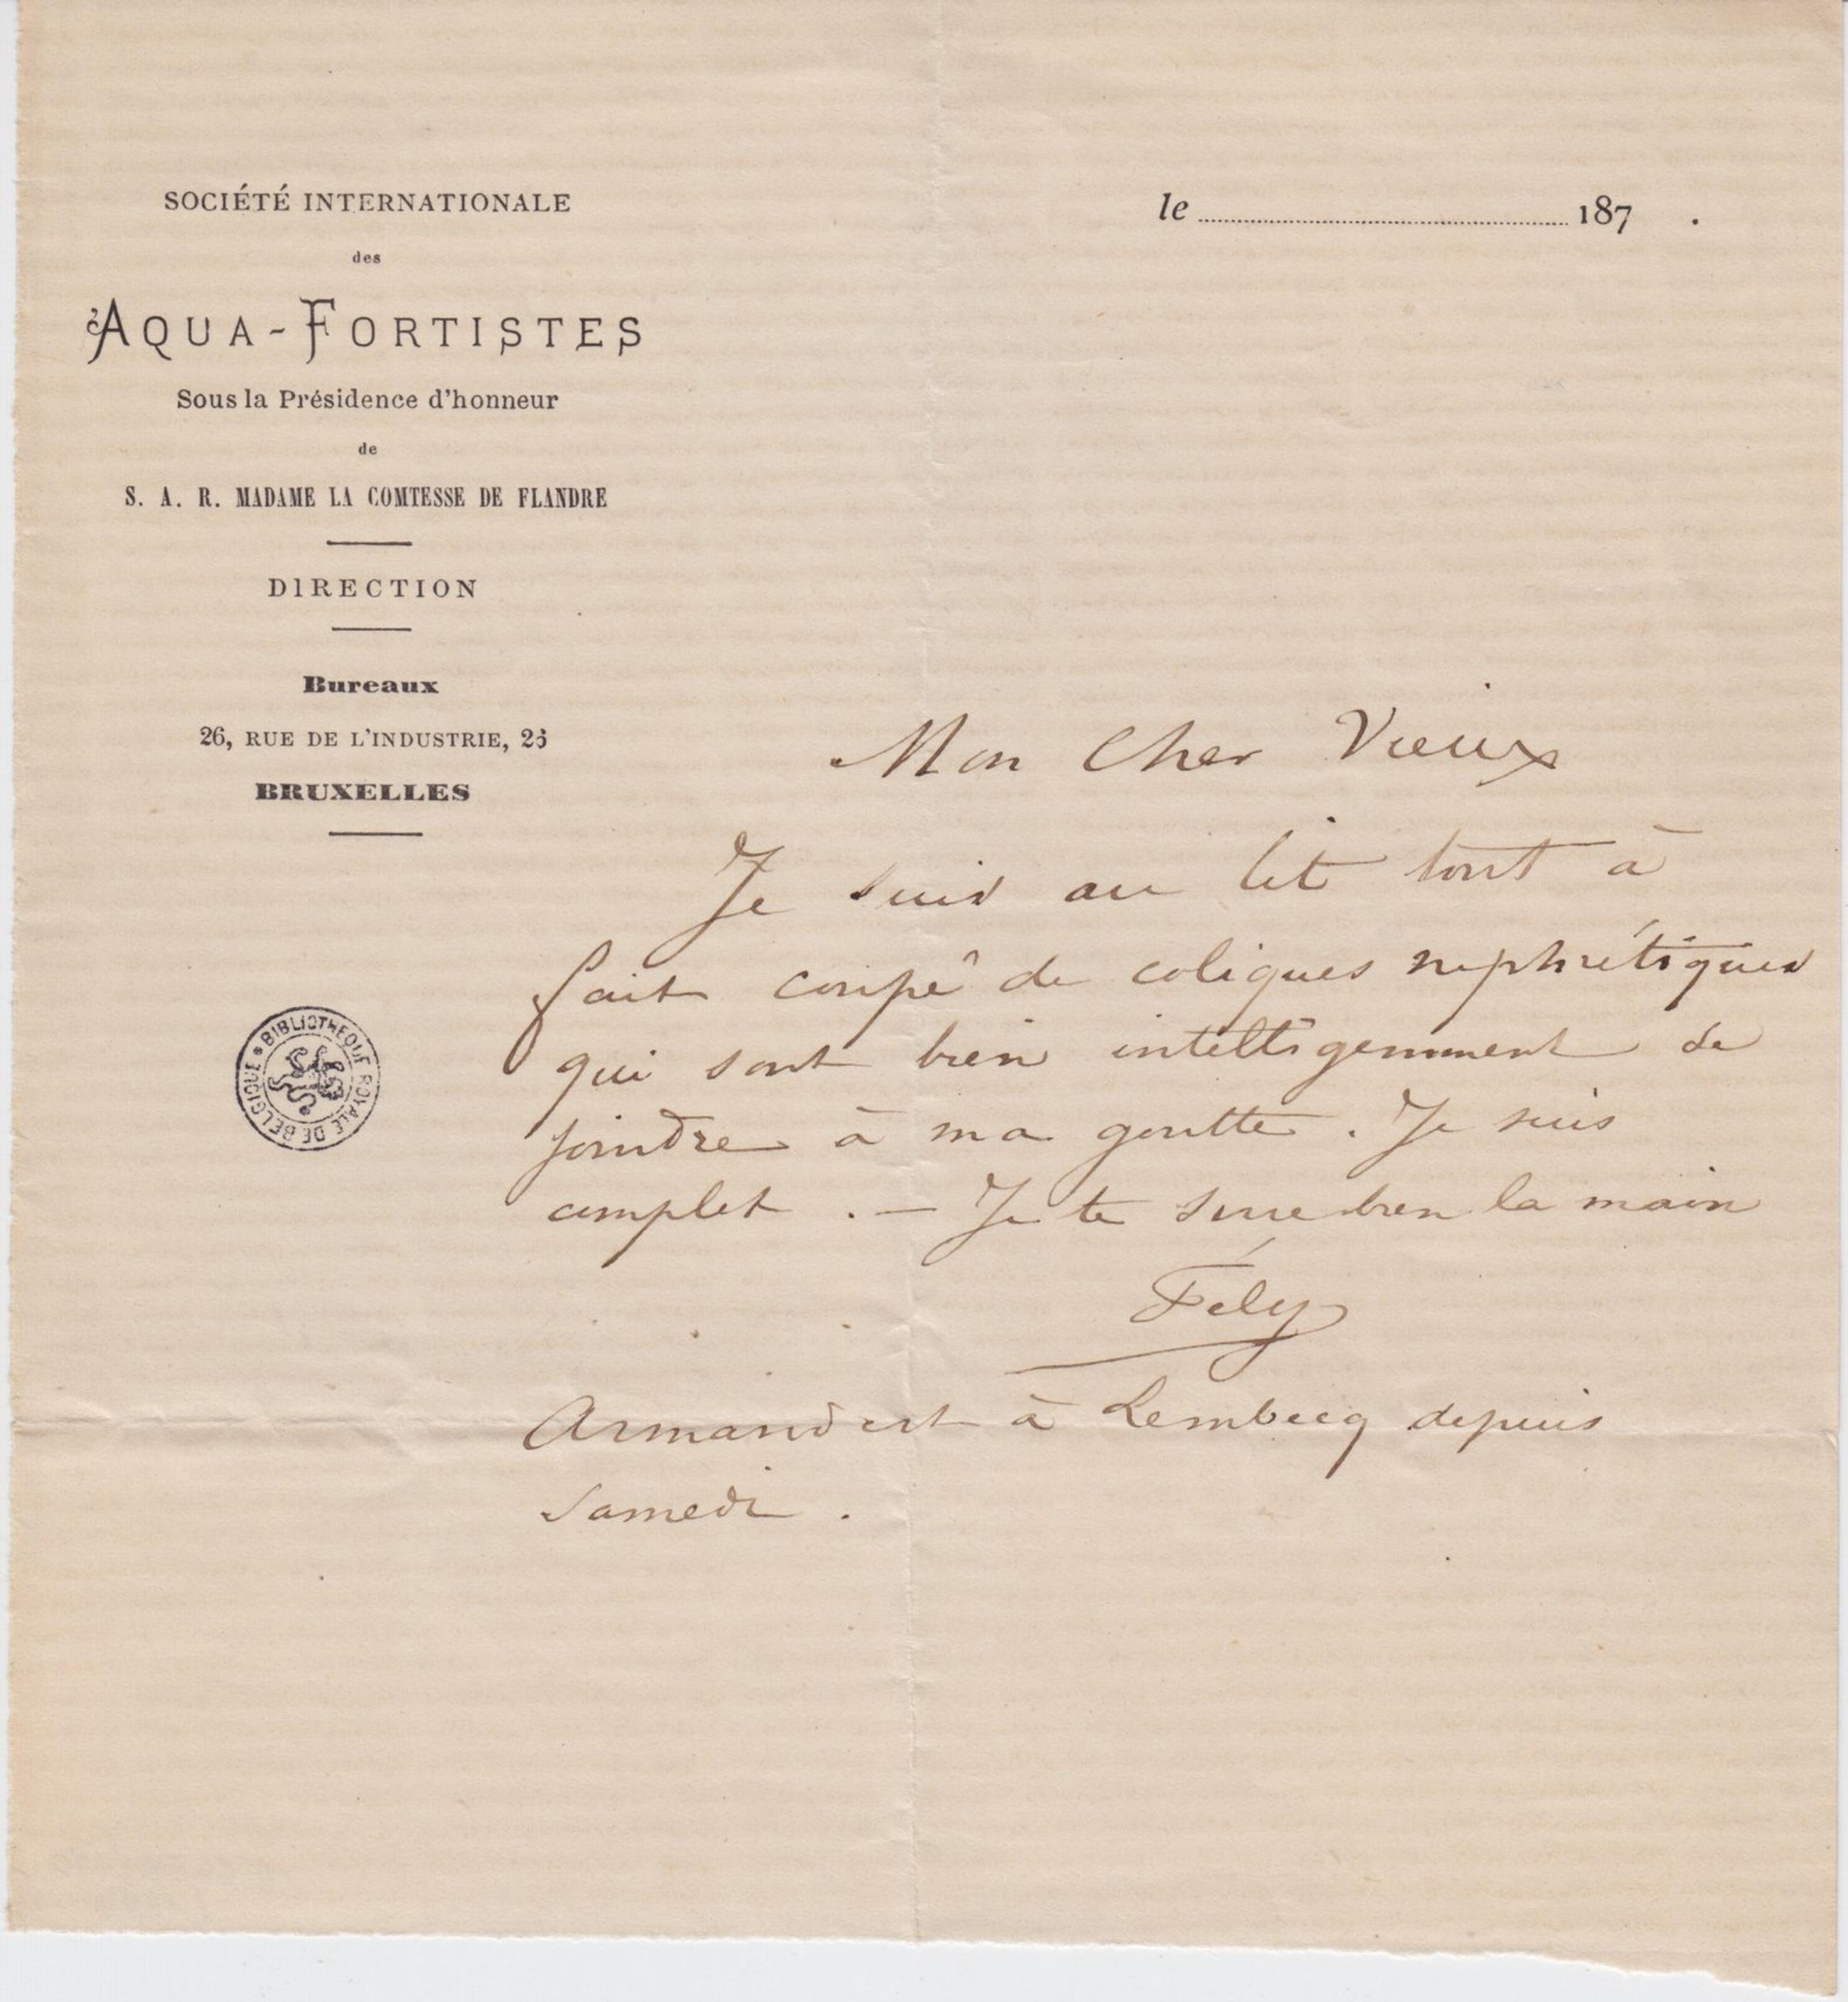 SOCIÉTÉ INTERNATIONALE
des
AQUA-FORTISTES
Sous la Présidence d'honneur
de
S. A. R. MADAME LA COMTESSE DE FLANDRE
DIRECTION
Bureaux
26, RUE DE L'INDUSTRIE, 26
BRUXELLES
le ........................ 187 .
Mon Cher Vieux
Je suis au lit tout à
fait coupé de coliques nephrétiques
qui sont bien intelligemment se
joindre à ma goutte. Je suis
complet. — Je te serre bien la main
Fély
Armand est à Lembecq depuis
Samedi.
BIBLIOTHEQUE ROYALE DE BELGIQUE